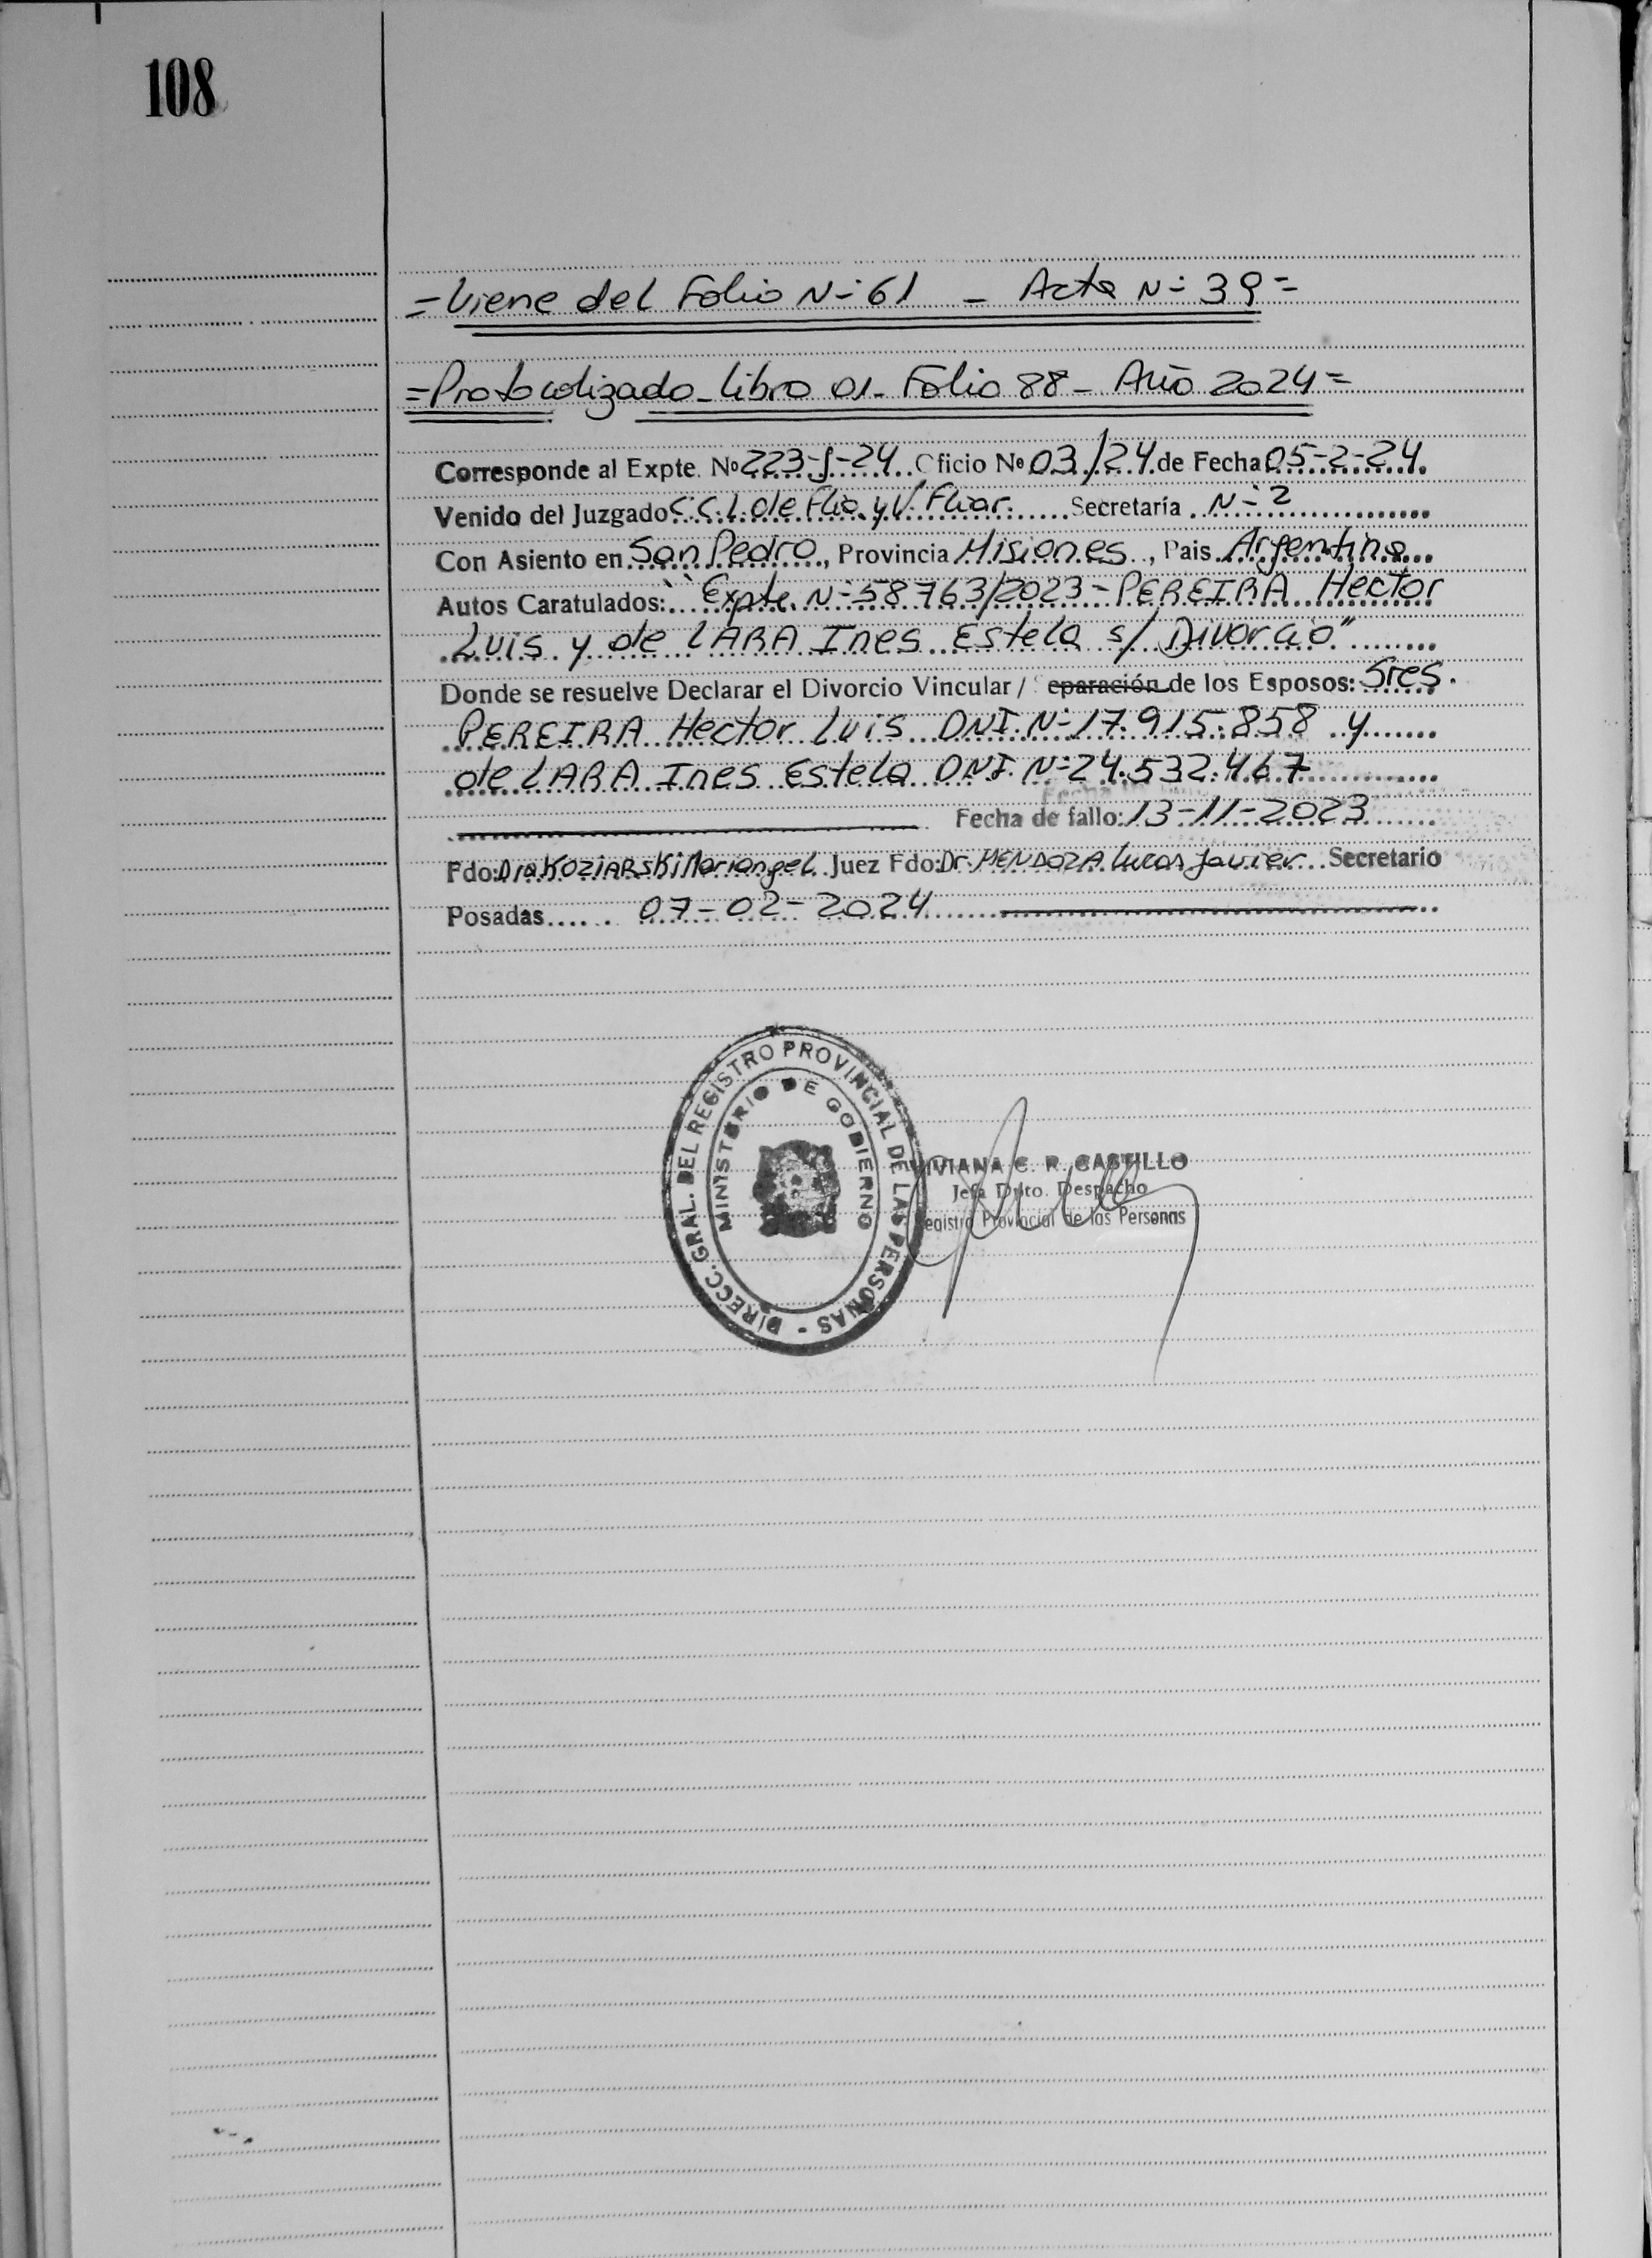 108
= Viene del Folio N-º 61 - Acta N-º 39 =
= Protocolizado - Libro 01 - Folio 88 - Año 2024 =
Corresponde al Expte. Nº 223-J-24 Oficio Nº 03/24 de Fecha 05-2-24
Venido del Juzgado C.C.L. de Flia y V. Fliar. Secretaría N-º 2
Con Asiento en San Pedro, Provincia Misiones, Pais Argentina
Autos Caratulados: "Expte. N-º 58763/2023 - PEREIRA Hector
Luis y de LARA Ines Estela s/ Divorcio"
Donde se resuelve Declarar el Divorcio Vincular / Separación de los Esposos: Sres.
PEREIRA Hector Luis DNI. N-º 17.915.858 y
de LARA Ines Estela DNI. N-º 24.532.467
Fecha de fallo: 13-11-2023
Fdo: Dra KOZIARSKi Mariangel. Juez Fdo: Dr. MENDOZA Lucas Javier Secretario
Posadas 07-02-2024
DIRECC. GRAL. DEL REGISTRO PROVINCIAL DE LAS PERSONAS -
MINISTERIO DE GOBIERNO
VIVIANA C. R. CASTILLO
Jefa Dpto. Despacho
Registro Provincial de las Personas